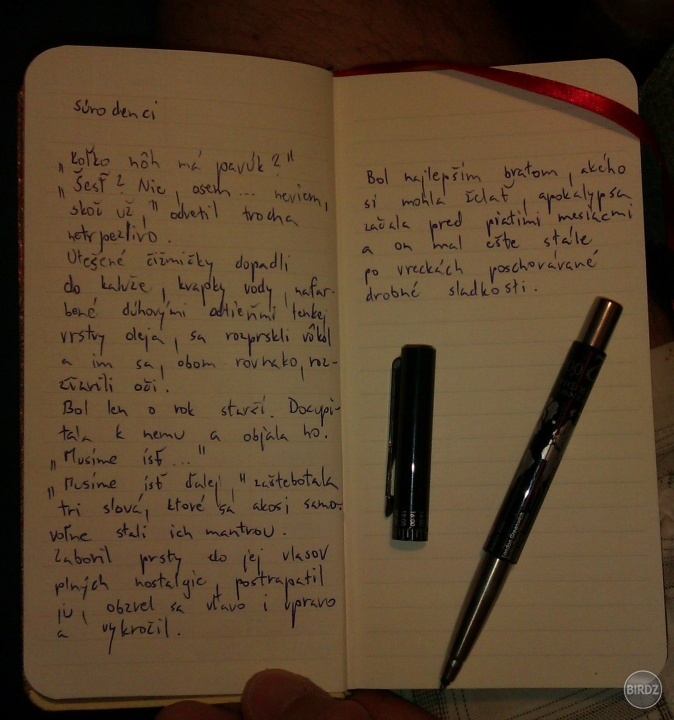 súrodenci
„Koľko nôh má pavúk?"
„Šesť? Nie, osem... neviem,
skoč už," odvetil trocha
netrpezlivo.
Utešené čižmičky dopadli
do kaluže, kvapky vody, nafar-
bené dúhovými odtieňmi tenkej
vrstvy oleja, sa rozprskli vôkol
a im sa, obom rovnako, roz-
žiarili oči.
Bol len o rok starší. Docupi-
tala k nemu a objala ho.
„Musíme ísť..."
„Musíme ísť ďalej," zaštebotala
tri slová, ktoré sa akosi samo-
voľne stali ich mantrou.
Zaboril prsty do jej vlasov
plných nostalgie, postrapatil
ju, obzrel sa vľavo i vpravo
a vykročil.
Bol najlepším bratom, akého
si mohla želať, apokalypsa
začala pred piatimi mesiacmi
a on mal ešte stále
po vreckách poschovávané
drobné sladkosti.
BIRDZ